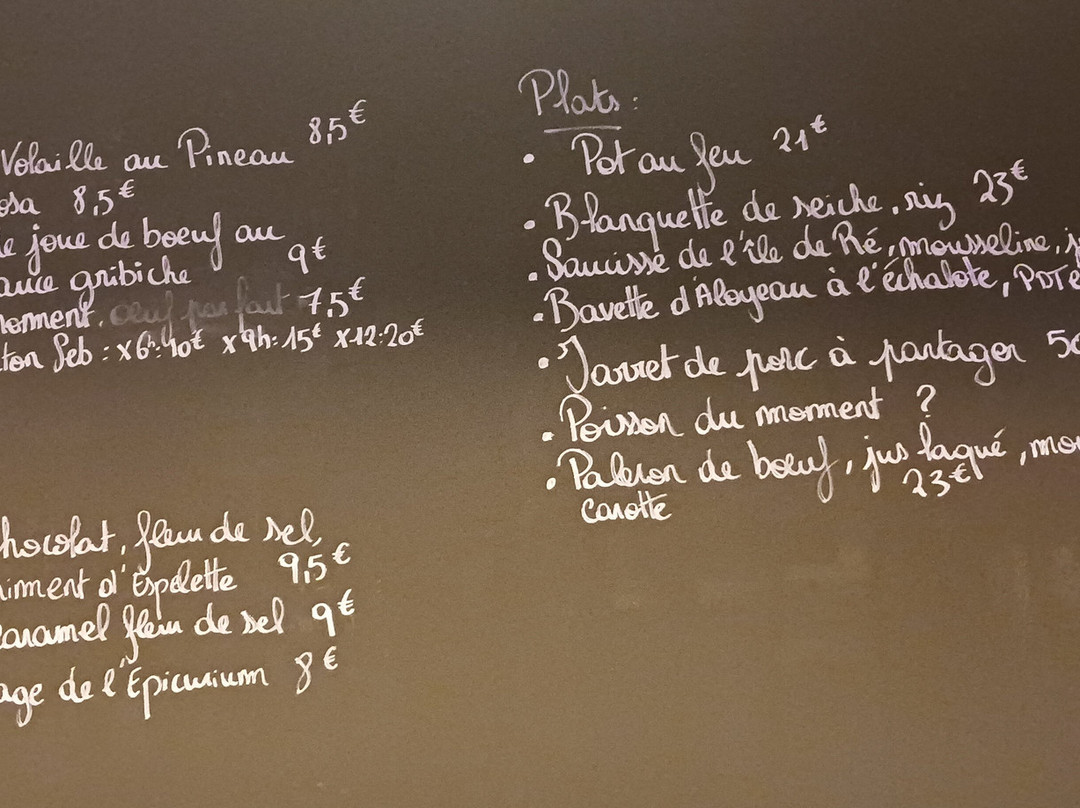 Volaille au Pineau 8,5€
osa 8,5€
e joue de boeuf au
auce gribiche 9€
moment, œuf parfait 7,5€
ton Seb : x6h: 10€ x9h: 15€ x12: 20€
hocolat, fleur de sel,
iment d'Espelette 9,5€
caramel fleur de sel 9€
age de l'Epicurium 8€
Plats :
• Pot au feu 21€
• Blanquette de seiche, riz 23€
• Saucisse de l'île de Ré, mousseline, j
• Bavette d'Aloyeau à l'échalote, PDTe
• Jarret de porc à partager 50
• Poisson du moment ?
• Paleron de boeuf, jus laqué, mou
carotte 23€